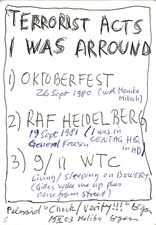 TERRORIST ACTS
I WAS ARROUND
1) OKTOBERFEST
26 Sept 1980 (with Monika
2) RAF HEIDELBERG
19 Sept 1981 (I was in
General Kroesen CENTAG HQ
in HD)
3) 9/11 WTC
Living/sleeping on BOWERY
(Gilles woke me up plus
noise from street)
"Check/Varity!!!"
03 Malibu